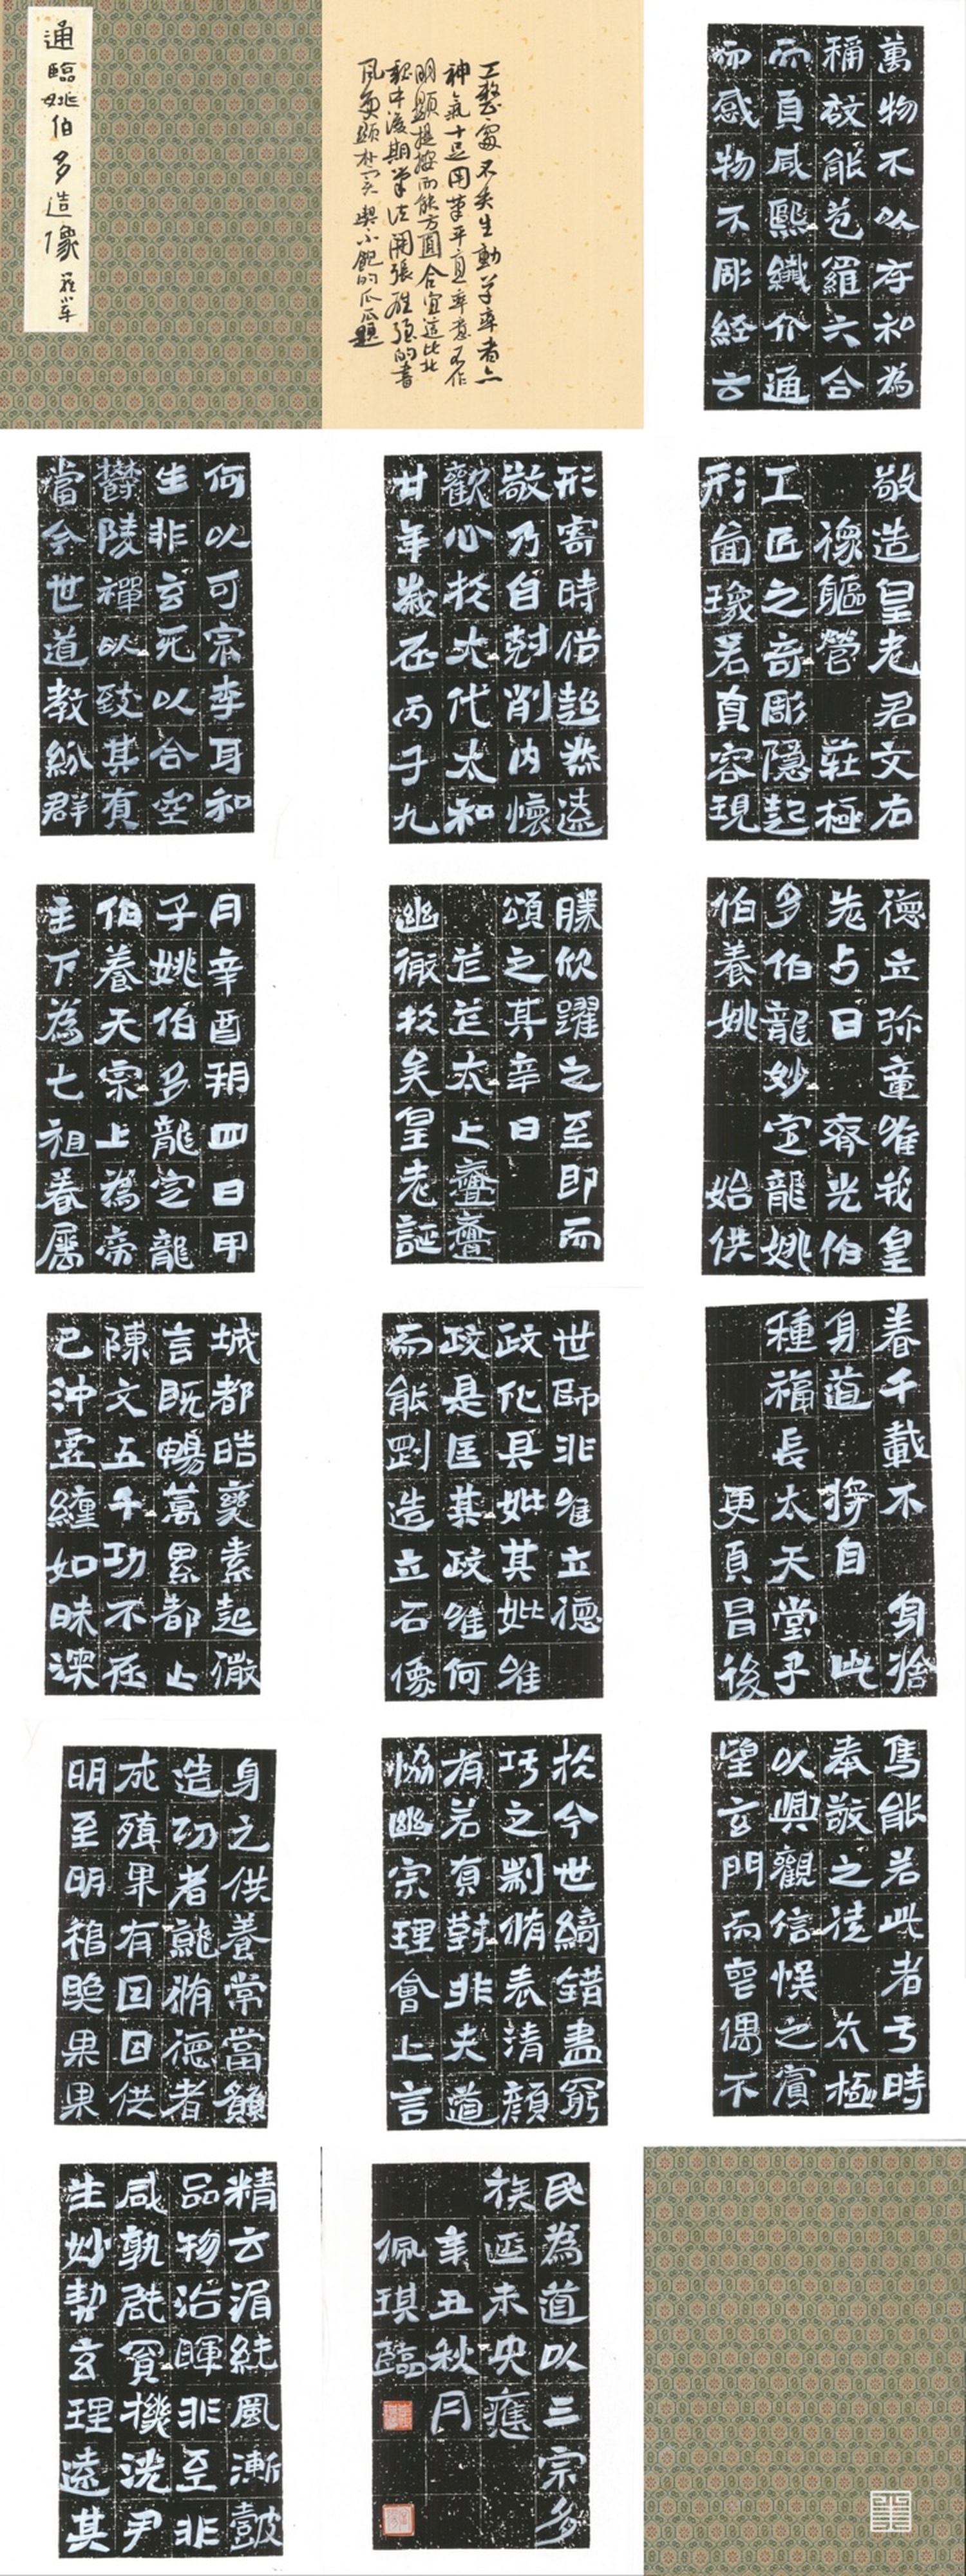 通臨姚伯多造像
工整処不失生動草率者亦
神氣十足用筆平直率意不作
明顯提按而能方圓合宜這比北
魏中後期筆法開張雄強的書
風更顯朴实
萬物不以存和為
稱故能苞羅六合
而真咸熙纖介通
而感物不彫経云
何以可宗李耳和
生非玄死以合空
欝陵禪以致其真
當今世道教紛群
形寄時俗超然遠
敬乃自剋削内懷
歡心於太代太和
廿年歲在丙子九
敬造皇老君文石
像軀營莊極
工匠之奇彫隱起
形啚瑑若真容現
月辛酉朔四日甲
子姚伯多龍定龍
伯養天宗上為帝
主下為七祖眷屬
欣躍之至即而
頌之其辛日
芒芒太上亹亹
幽微於矣皇老誕
德立弥童唯我皇
先占日齊光伯
多伯龍妙定龍姚
伯養姚始供
城都皓素起微
言既暢萬累都止
陳文五千功不在
已沖霊纏如昧深
世師非唯立德
政化具如其如唯
政是匡其政唯何
而能劉造立石像
春千載不身捨
身道將自此
種福長太天堂子
更真昌後
身之供養常當
造功者龍脩德者
成殖果有因因供
明至明果果
於今世綺錯盡窮
巧之制脩表清顔
有若真對非夫道
協幽宗理會上言
焉能若此者于時
奉敬之徒太極
以興觀信悮之賓
望玄門而喪偶不
精云淄純風漸
品物沿暉非至非
咸孰能冥機洗尹
生妙契玄理遠其
民為道以三宗多
族延未央應
辛丑秋月
佩琪臨